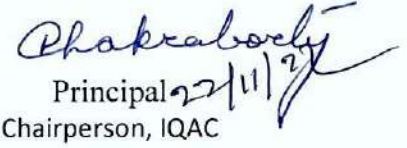 Chakraborty
Principal 22/11/21
Chairperson, IQAC